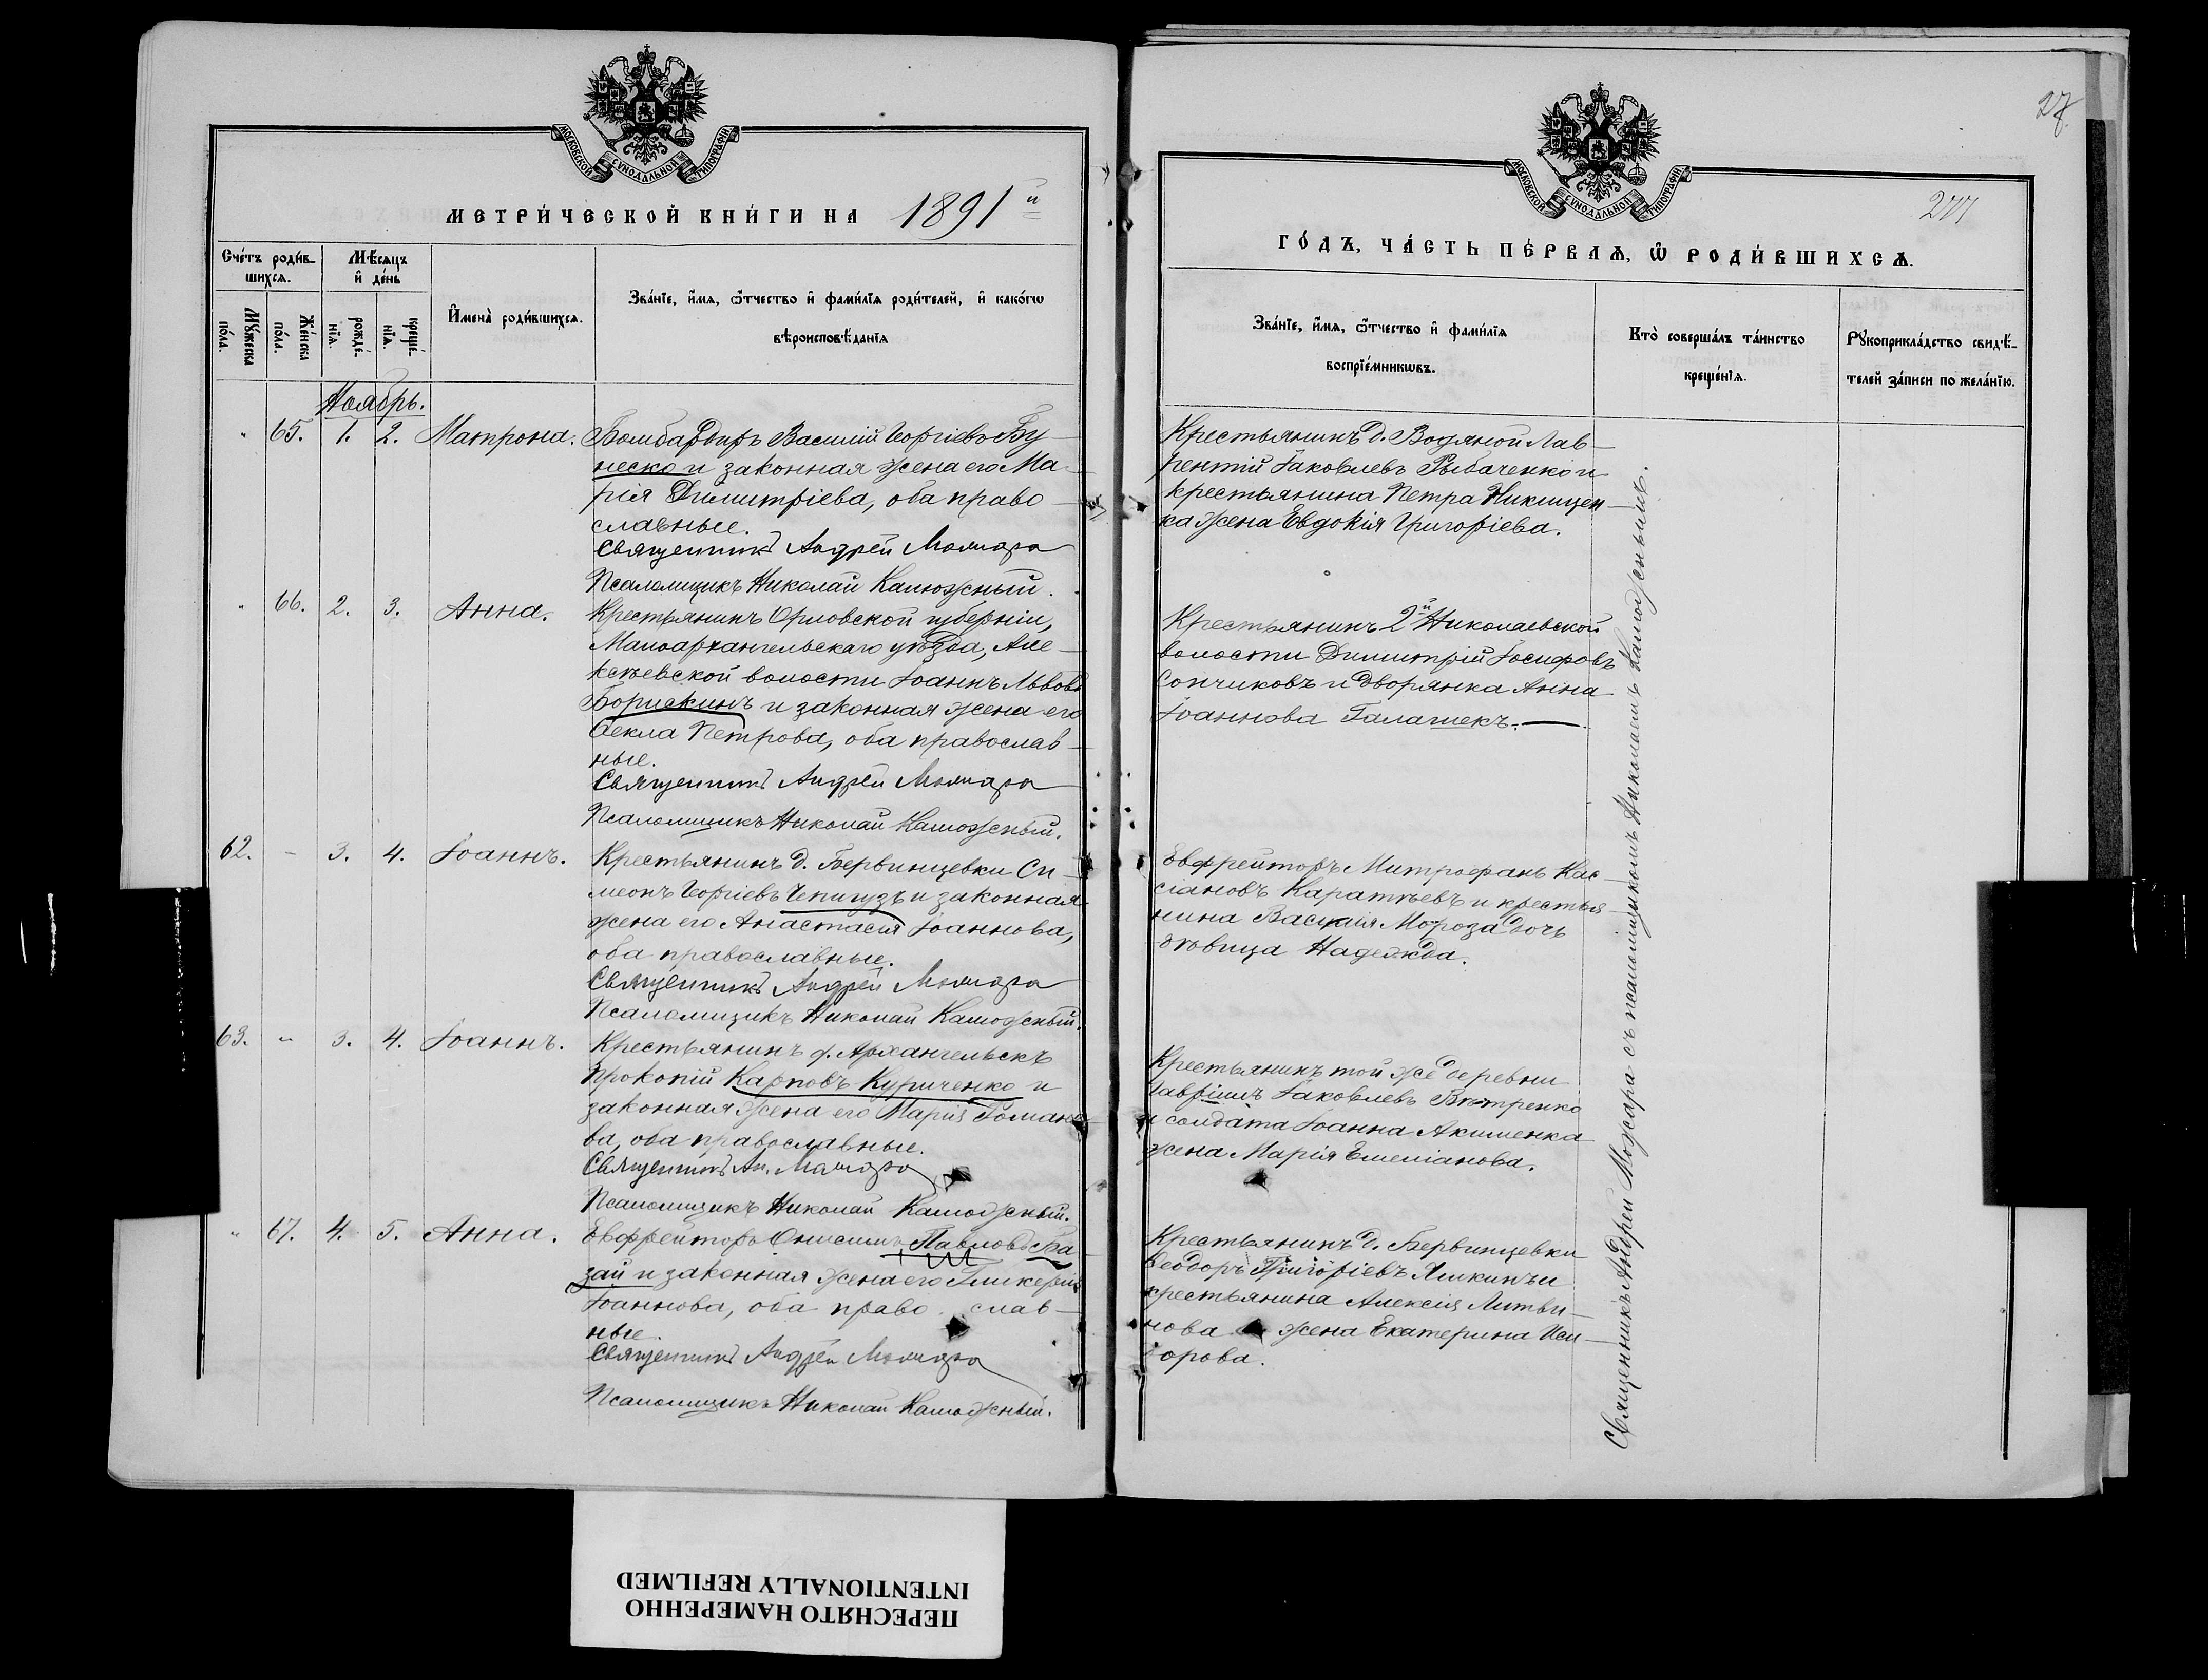 МОСКОВСКОЙ СѴНОДАЛЬНОЙ ТИПОГРАФІИ
МЕТРИ́ЧЕСКОЙ КНИ́ГИ НА 1891й
Сче́тъ роди́в-
шихсѧ.
Мѣ́сѧцъ
и҆ де́нь
Мꙋ́жеска
по́ла.
Же́нска
по́ла.
рожде́-
нїѧ.
креще́-
нїѧ.
И҆мена̀ роди́вшихсѧ.
Зва́нїе, и҆́мѧ, ѻ҆́тчество и҆ фами́лїѧ роди́телей, и҆ како́гѡ
вѣроисповѣ́данїѧ
Ноябрь.
" 65. 1. 2. Матрона. Бомбардиръ Василій Георгіевъ Бу-
неско и законная жена его Ма-
рія Димитріева, оба право-
славные.
Священникъ Андрей Можара
Псаломщикъ Николай Калюжный.
" 66. 2. 3. Анна. Крестьянинъ Орловской губерніи,
Малоархангельскаго уѣзда, Але-
ксѣевской волости Іоаннъ Львовъ
Борискинъ и законная жена его
Ѳекла Петрова, оба православ-
ные.
Священникъ Андрей Можара
Псаломщикъ Николай Калюжный.
62. - 3. 4. Іоаннъ. Крестьянинъ д. Бервинцевки Си-
меонъ Георгіевъ Чепигузъ и законная
жена его Анастасія Іоаннова,
оба православные.
Священникъ Андрей Можара
Псаломщикъ Николай Калюжный.
63. " 3. 4. Іоаннъ. Крестьянинъ д. Архангельскъ
Прокопій Карповъ Куриченко и
законная жена его Марія Романо-
ва, оба православные.
Священникъ Ан. Можара
Псаломщикъ Николай Калюжный.
" 67. 4. 5. Анна. Ефрейторъ Онисимъ Павловъ Ба-
зай и законная жена его Гликерія
Іоаннова, оба право славные
ные.
Священникъ Андрей Можара
Псаломщикъ Николай Калюжный.
27.
277
МОСКОВСКОЙ СѴНОДАЛЬНОЙ ТИПОГРАФІИ
ГО́ДЪ, ЧА́СТЬ ПЕ́РВАѦ, Ѡ҆ РОДИ́ВШИХСѦ.
Зва́нїе, и҆́мѧ, ѻ҆́тчество и҆ фами́лїѧ
воспрїе́мникѡвъ.
Кто̀ соверша́лъ та́инство
креще́нїѧ.
Рꙋкоприкла́дство свидѣ́-
телей за́писи по жела́нїю.
Крестьянинъ д. Водяной Лав-
рентій Іаковлевъ Рыбаченко и
крестьянина Петра Никищен-
ка жена Евдокія Григоріева.
Крестьянинъ 2й Николаевской
волости Димитрій Іосифовъ
Сопчиковъ и дворянка Анна
Іоаннова Галашекъ.
Евфрейторъ Митрофанъ Кас-
сіановъ Каратѣевъ и крестья-
нина Василія Мороза дочь
дѣвица Надежда.
Крестьянинъ той же деревни
Гавріилъ Іаковлевъ Вѣтренко
и солдата Іоанна Акименка
жена Марія Емеліанова.
Крестьянинъ д. Бервинцевки
Ѳеодоръ Григоріевъ Яшкинъ и
крестьянина Алексія Литви-
нова жена Екатерина Иси-
дорова.
Священникъ Андрей Можара съ псаломщикомъ Николаемъ Калюжнымъ.
ПЕРЕСНЯТО НАМЕРЕННО
INTENTIONALLY REFILMED